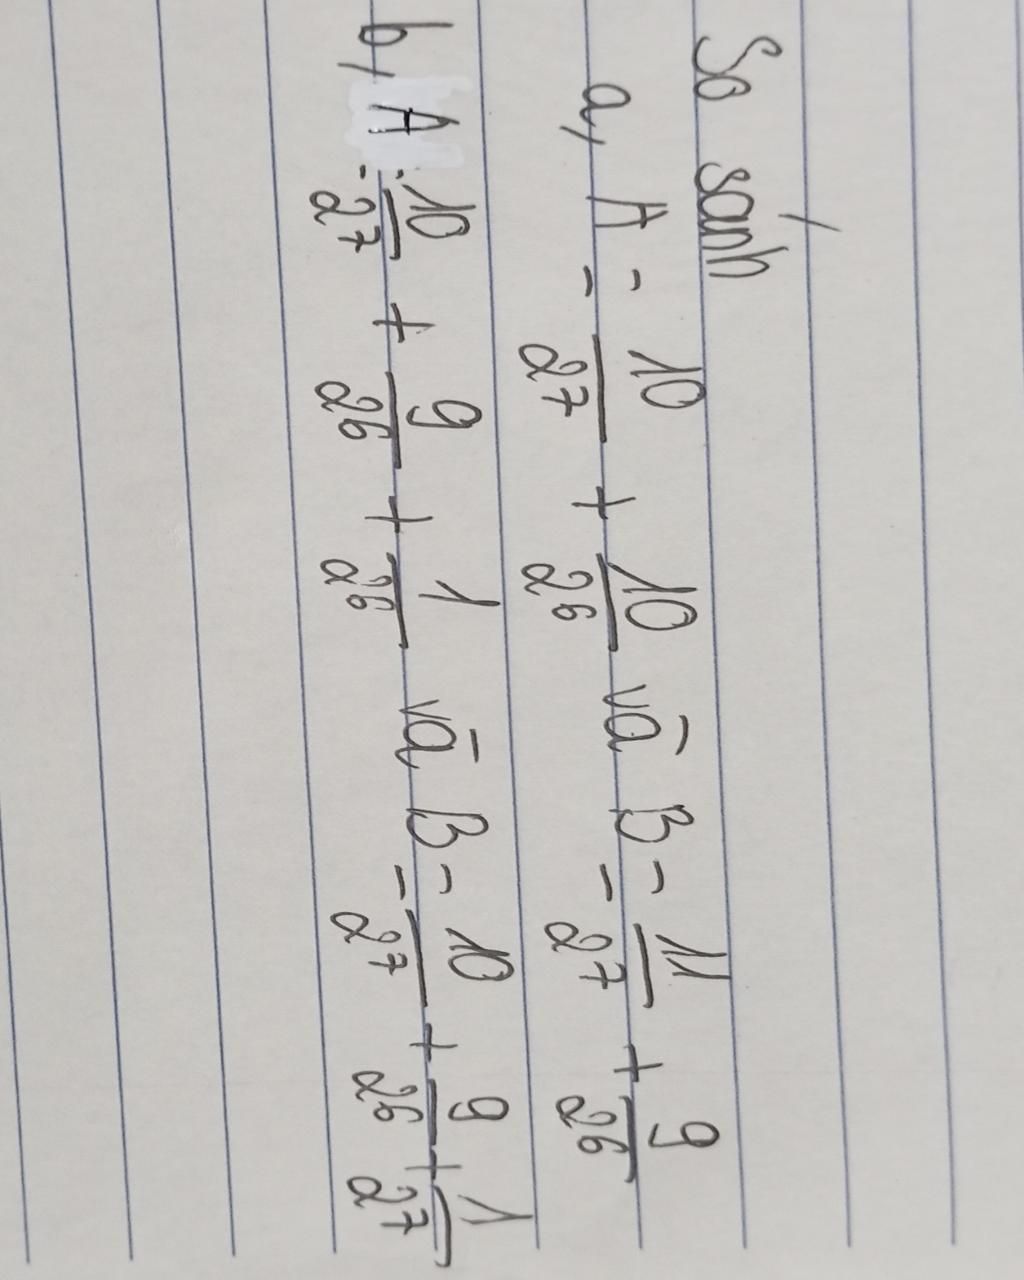 So sánh
a, A = 10/2⁷ + 10/2⁶ và B = 11/2⁷ + 9/2⁶
b, A = 10/2⁷ + 9/2⁶ + 1/2⁶ và B = 10/2⁷ + 9/2⁶ + 1/2⁷